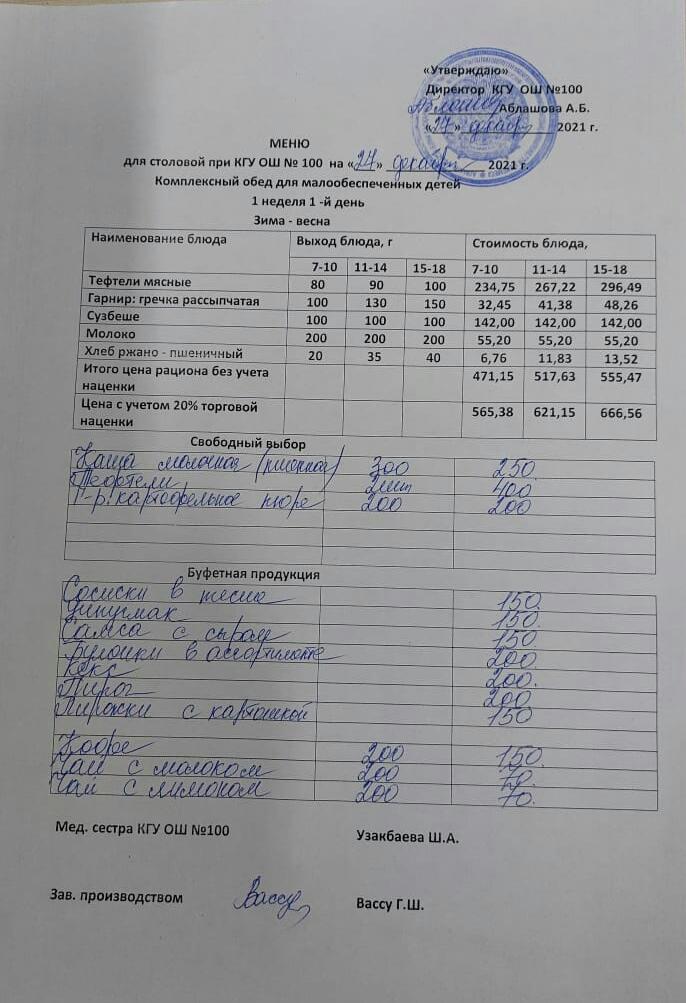 «Утверждаю»
Директор КГУ ОШ №100
Аблашова А.Б.
«27» декабря 2021 г.
МЕНЮ
для столовой при КГУ ОШ № 100 на «27» декабря 2021 г.
Комплексный обед для малообеспеченных детей
1 неделя 1 -й день
Зима - весна
Наименование блюда Выход блюда, г Стоимость блюда,
7-10 11-14 15-18 7-10 11-14 15-18
Тефтели мясные 80 90 100 234,75 267,22 296,49
Гарнир: гречка рассыпчатая 100 130 150 32,45 41,38 48,26
Сузбеше 100 100 100 142,00 142,00 142,00
Молоко 200 200 200 55,20 55,20 55,20
Хлеб ржано - пшеничный 20 35 40 6,76 11,83 13,52
Итого цена рациона без учета 471,15 517,63 555,47
наценки
Цена с учетом 20% торговой 565,38 621,15 666,56
наценки
Свободный выбор
Каша молочная (пшенная) 300 250
Тефтели 2шт 400
Г-р: картофельное пюре 200 200
Буфетная продукция
Сосиски в тесте 150
150
Самса с сыром 150
Булочки в ассортименте 200
Кекс 200
Пирог 200
Пирожки с картошкой 150
Кофе 200 150
Чай с молоком 200 70
Чай с лимоном 200 70
Мед. сестра КГУ ОШ №100 Узакбаева Ш.А.
Зав. производством Вассу Вассу Г.Ш.